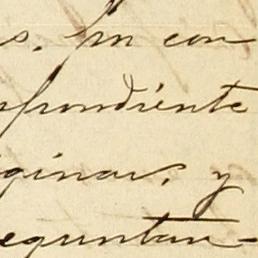 s. Sin con
spondiente
iginar, y
eguntan-